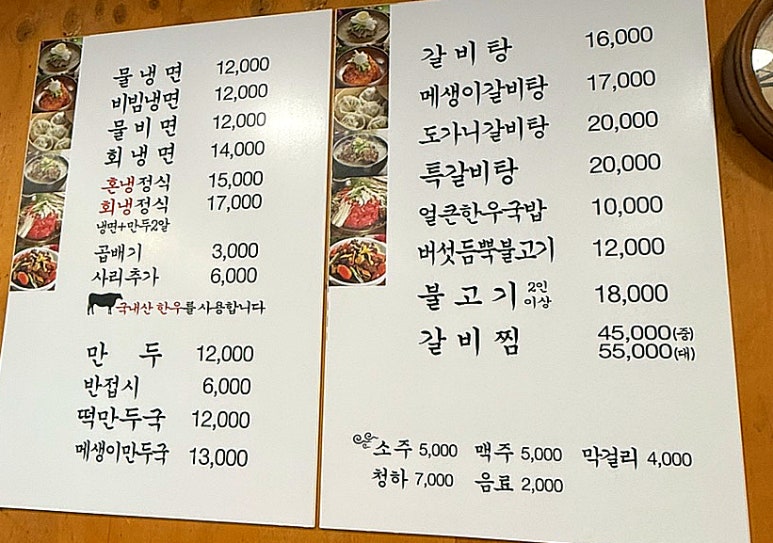 물냉면 12,000
비빔냉면 12,000
물비면 12,000
회냉면 14,000
혼냉정식 15,000
회냉정식 17,000
냉면+만두2알
곱배기 3,000
사리추가 6,000
국내산 한우를 사용합니다
만두 12,000
반접시 6,000
떡만두국 12,000
메생이만두국 13,000
갈비탕 16,000
메생이갈비탕 17,000
도가니갈비탕 20,000
특갈비탕 20,000
얼큰한우국밥 10,000
버섯듬뿍불고기 12,000
불고기 2인이상 18,000
갈비찜 45,000(중)
55,000(대)
소주 5,000 맥주 5,000 막걸리 4,000
청하 7,000 음료 2,000